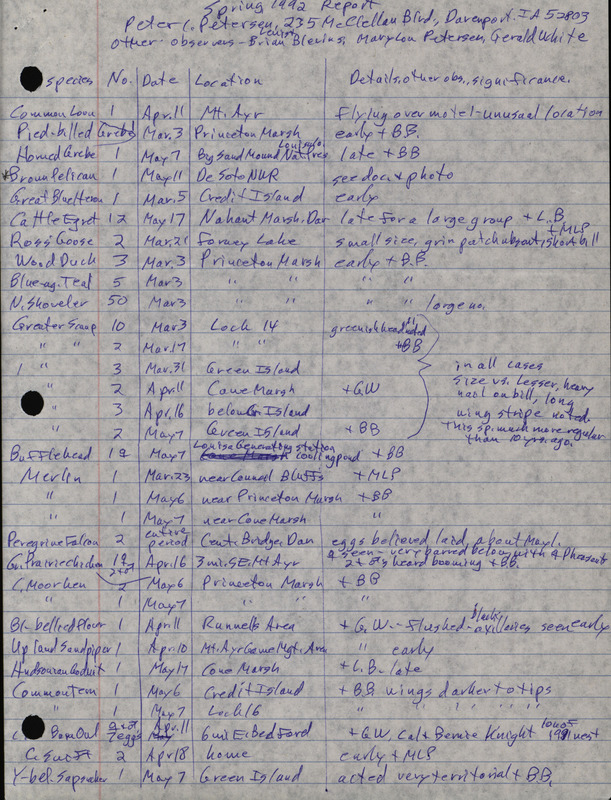 Spring 1992 Report
Peter C. Petersen, 235 McClellan Blvd., Davenport IA 52803
Other observers - Brian Blevins, Mary Lou Petersen, Gerald White
species No. Date Location Details, other obs., significance.
Common Loon 1 Apr. 11 Mt. Ayr Flying over motel - unusual location
Pied-billed Grebe 1 Mar. 3 Princeton Marsh early + BB.
Horned Grebe 1 May 7 Big Sand Mound Nat Pres late + BB
*Brown Pelican 1 May 11 De Soto NWR see doc. + photo
Great Blue Heron 1 Mar. 5 Credit Island early
Cattle Egret 12 May 17 Nahant Marsh, Dav late for a large group + L.B
+ MLP
Ross' Goose 2 Mar. 21 Forney Lake small size, grin patch absent, short bill
Wood Duck 3 Mar. 3 Princeton Marsh early + B.B.
Blue-wg. Teal 5 Mar 3 " " " "
N. Shoveler 50 Mar 3 " " " " large no.
Greater Scaup 10 Mar 3 Lock 14 greenish head noted
+BB
" " 2 Mar. 17 " "
" " 3 Mar. 31 Green Island
" 2 Apr. 11 Cone Marsh + GW
" 3 Apr. 16 below Gr. Island
" 2 May 7 Green Island + BB
in all cases
size vs. Lesser, heavy
nail on bill, long
wing stripe noted
This sp. much more regular
than 10 yrs. ago.
Bufflehead 1♀ May 7 Louisa Generating Station cooling pond + BB
Merlin 1 Mar. 23 near Council Bluffs + MLP
" 1 May 6 near Princeton Marsh + BB
" 1 May 7 near Cone Marsh "
Peregrine Falcon 2 entire period Cent. Bridge, Dav eggs believed laid, about May 1.
G. Prairie Chicken 1♀ 2+♂ Apr. 16 3 mi. SE Mt Ayr ♀ seen - very barred below with ♀ pheasants
2+ ♂'s heard booming + BB.
C. Moorhen 2 May 6 Princeton Marsh + BB
" 1 May 7 " " "
Bl-bellied Plover 1 April 11 Runnells Area + G.W. - flushed - black axillaries seen early
Upland Sandpiper 1 Apr. 10 Mt. Ayr Game Mgt. Area " early
Hudsonian Godwit 1 May 17 Cone Marsh + L.B. late
Common Tern 1 May 6 Credit Island + BB wings darker to tips
" 1 May 7 Lock 16 " " " " "
Barn Owl ♀+♂ 7 eggs Apr. 11 6 mi E. Bedford + GW, Cal + Bernie Knight 1991 nest
2 Apr 18 home early + MLP
Y-bel. Sapsucker 1 May 7 Green Island acted very territorial + BB.